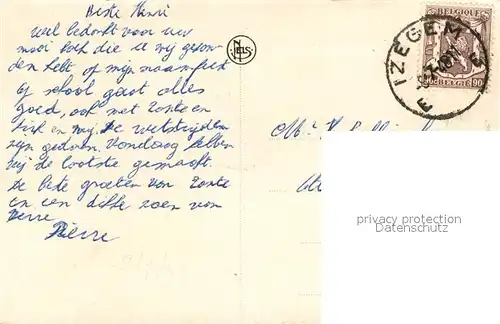 Beste Henri
wel bedankt voor uw
mooi boek die u mij gezon-
den hebt op mijn naamfeest
Op school gaat alles
goed, ook met Tante en
en mij. De wetstrijden
zijn gedaan. Vandaag hebben
wij de laatste gemaakt.
De beste groeten van Tante
en een dikke zoen van
Pierre
Pierre
NELS
BELGIQUE
BELGIË
90
IZEGEM
privacy protection
Datenschutz